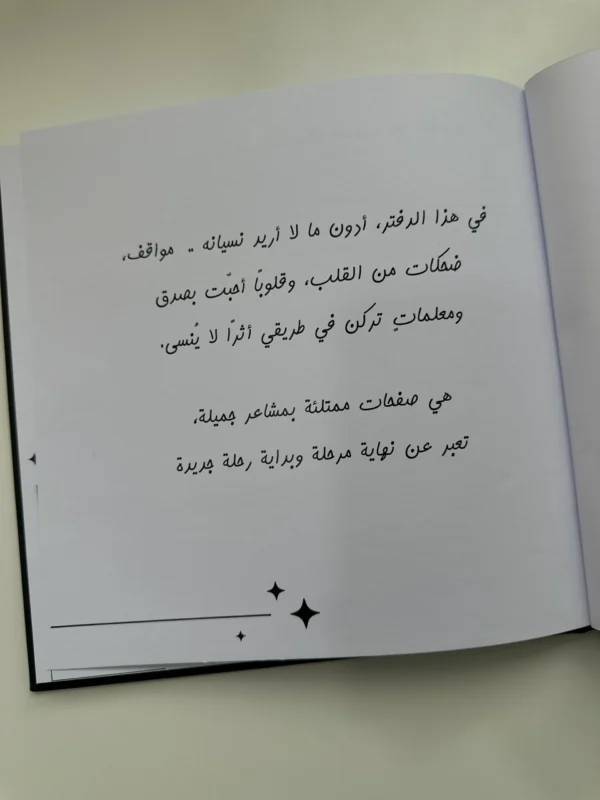 في هذا الدفتر، أدون ما لا أريد نسيانه .. مواقف،
ضحكات من القلب، وقلوبًا أحبّت بصدق
ومعلماتٍ تركن في طريقي أثرًا لا يُنسى.
هي صفحات ممتلئة بمشاعر جميلة،
تعبر عن نهاية مرحلة وبداية رحلة جديدة